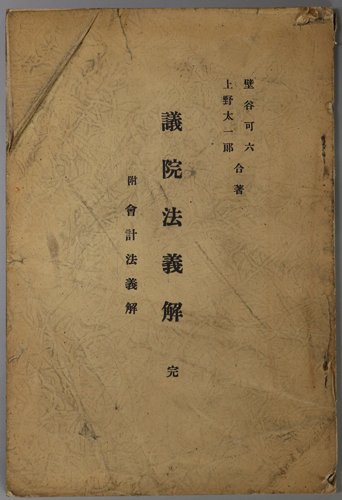 壁谷可六
上野太一郎
合著
議院法義解 完
附會計法義解